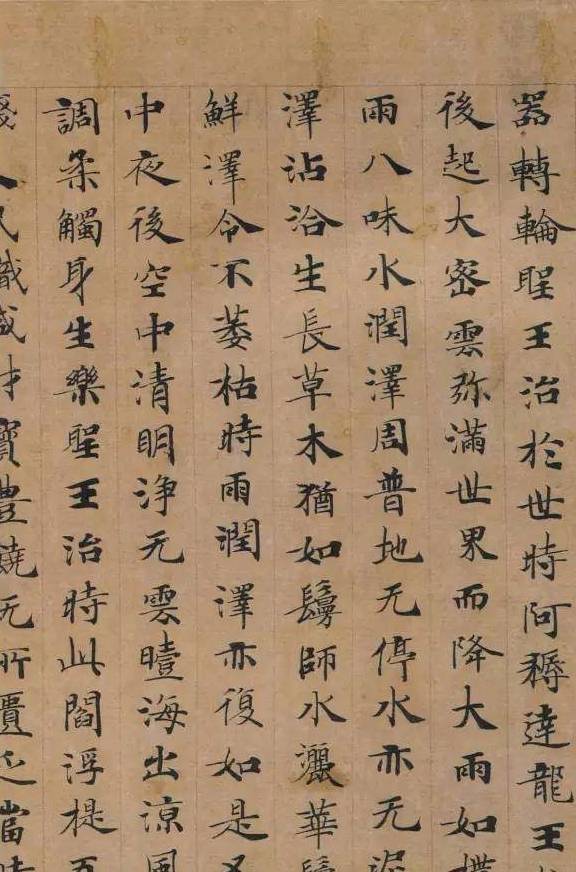 噐轉輪聖王治於世時阿耨達龍王
後起大密雲弥滿世界而降大雨如
雨八味水潤澤周普地无停水亦无泥
澤沾洽生長草木猶如鬘師水灑華鬘
鮮澤令不萎枯時雨潤澤亦復如是又
中夜後空中清明淨无雲曀海出涼風
調柔觸身生樂聖王治時此閻浮提五
人民熾盛財寶豊饒无所匱乏當時